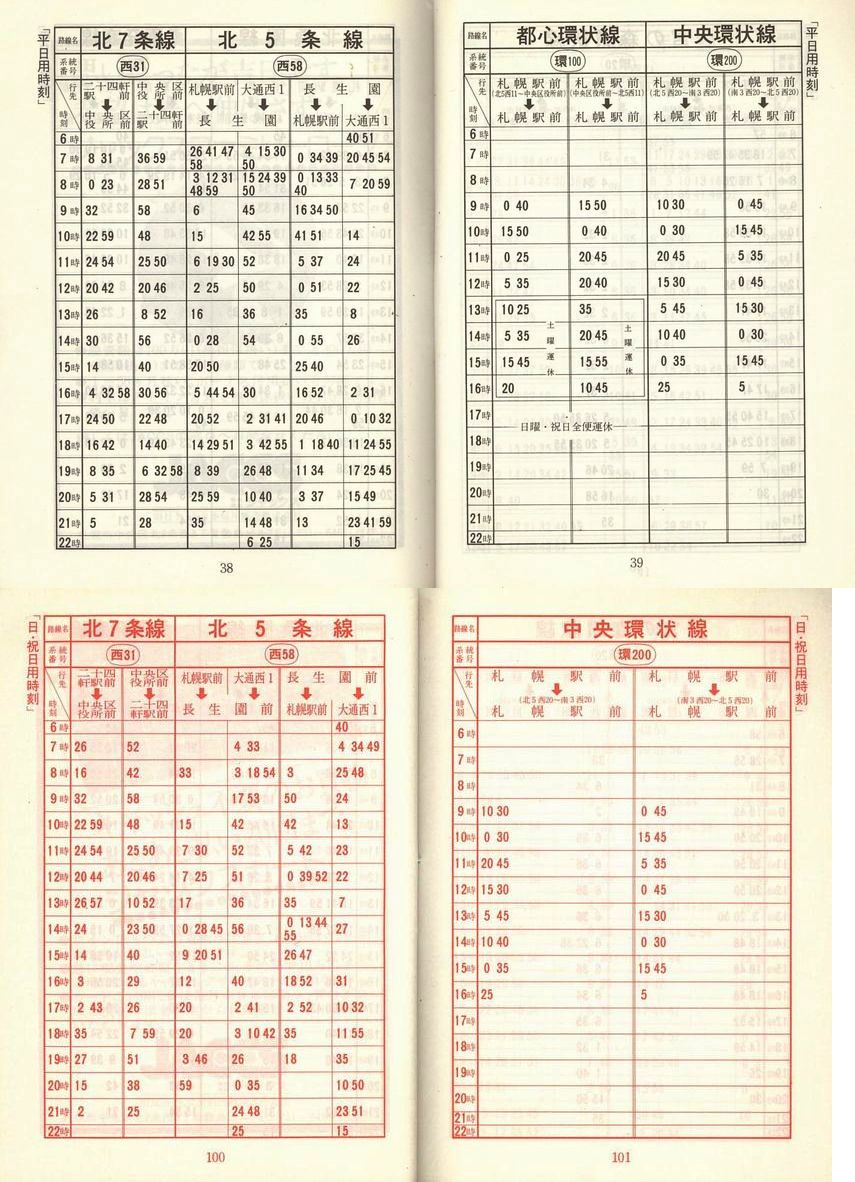 「平日用時刻」
路線名 北7条線 北5条線
系統番号 西31 西58
行先 二十四軒駅前 中央区役所前 札幌駅前 大通西1 長生園
時刻 中央区役所前 二十四軒駅前 長生園 札幌駅前 大通西1
6時 40 51
7時 8 31 36 59 26 41 47 58 4 15 30 50 0 34 39 20 45 54
8時 0 23 28 51 3 12 31 48 59 15 24 39 50 0 13 33 40 7 20 59
9時 32 58 6 45 16 34 50
10時 22 59 48 15 42 55 41 51 14
11時 24 54 25 50 6 19 30 52 5 37 24
12時 20 42 20 46 2 25 50 0 51 22
13時 26 8 52 16 36 35 8
14時 30 56 0 28 54 0 55 26
15時 14 40 20 50 25 40
16時 4 32 58 30 56 5 44 54 30 16 52 2 31
17時 24 50 22 48 20 52 2 31 41 20 46 0 10 32
18時 16 42 14 40 14 29 51 3 42 55 1 18 40 11 24 55
19時 8 35 6 32 58 8 39 26 48 11 34 17 25 45
20時 5 31 28 54 25 59 10 40 3 37 15 49
21時 5 28 35 14 48 13 23 41 59
22時 6 25 15
38
「平日用時刻」
路線名 都心環状線 中央環状線
系統番号 環100 環200
行先 札幌駅前 札幌駅前 札幌駅前 札幌駅前
(北5西11〜中央区役所前) (中央区役所前〜北5西11) (北5西20〜南3西20) (南3西20〜北5西20)
時刻 札幌駅前 札幌駅前 札幌駅前 札幌駅前
6時
7時
8時
9時 0 40 15 50 10 30 0 45
10時 15 50 0 40 0 30 15 45
11時 0 25 20 45 20 45 5 35
12時 5 35 20 40 15 30 0 45
13時 10 25 35 5 45 15 30
14時 5 35 20 45 10 40 0 30
15時 15 45 15 55 0 35 15 45
16時 20 10 45 25 5
土曜運休 土曜運休
17時
日曜・祝日全便運休
18時
19時
20時
21時
22時
39
「日・祝日用時刻」
路線名 北7条線 北5条線
系統番号 西31 西58
行先 二十四軒駅前 中央区役所前 札幌駅前 大通西1 長生園前
時刻 中央区役所前 二十四軒駅前 長生園前 札幌駅前 大通西1
6時 40
7時 26 52 4 33 4 34 49
8時 16 42 33 3 18 54 3 25 48
9時 32 58 17 53 50 24
10時 22 59 48 15 42 42 13
11時 24 54 25 50 7 30 52 5 42 23
12時 20 44 20 46 7 25 51 0 39 52 22
13時 26 57 10 52 17 36 35 7
14時 24 23 50 0 28 45 56 0 13 44 55 27
15時 14 40 9 20 51 26 47
16時 3 29 12 40 18 52 31
17時 2 43 26 20 2 41 2 52 10 32
18時 35 7 59 20 3 10 42 35 11 55
19時 27 51 3 46 26 18 35
20時 15 38 59 0 35 10 50
21時 2 25 24 48 23 51
22時 25 15
100
「日・祝日用時刻」
路線名 中央環状線
系統番号 環200
行先 札幌駅前 札幌駅前
(北5西20〜南3西20) (南3西20〜北5西20)
時刻 札幌駅前 札幌駅前
6時
7時
8時
9時 10 30 0 45
10時 0 30 15 45
11時 20 45 5 35
12時 15 30 0 45
13時 5 45 15 30
14時 10 40 0 30
15時 0 35 15 45
16時 25 5
17時
18時
19時
20時
21時
22時
101